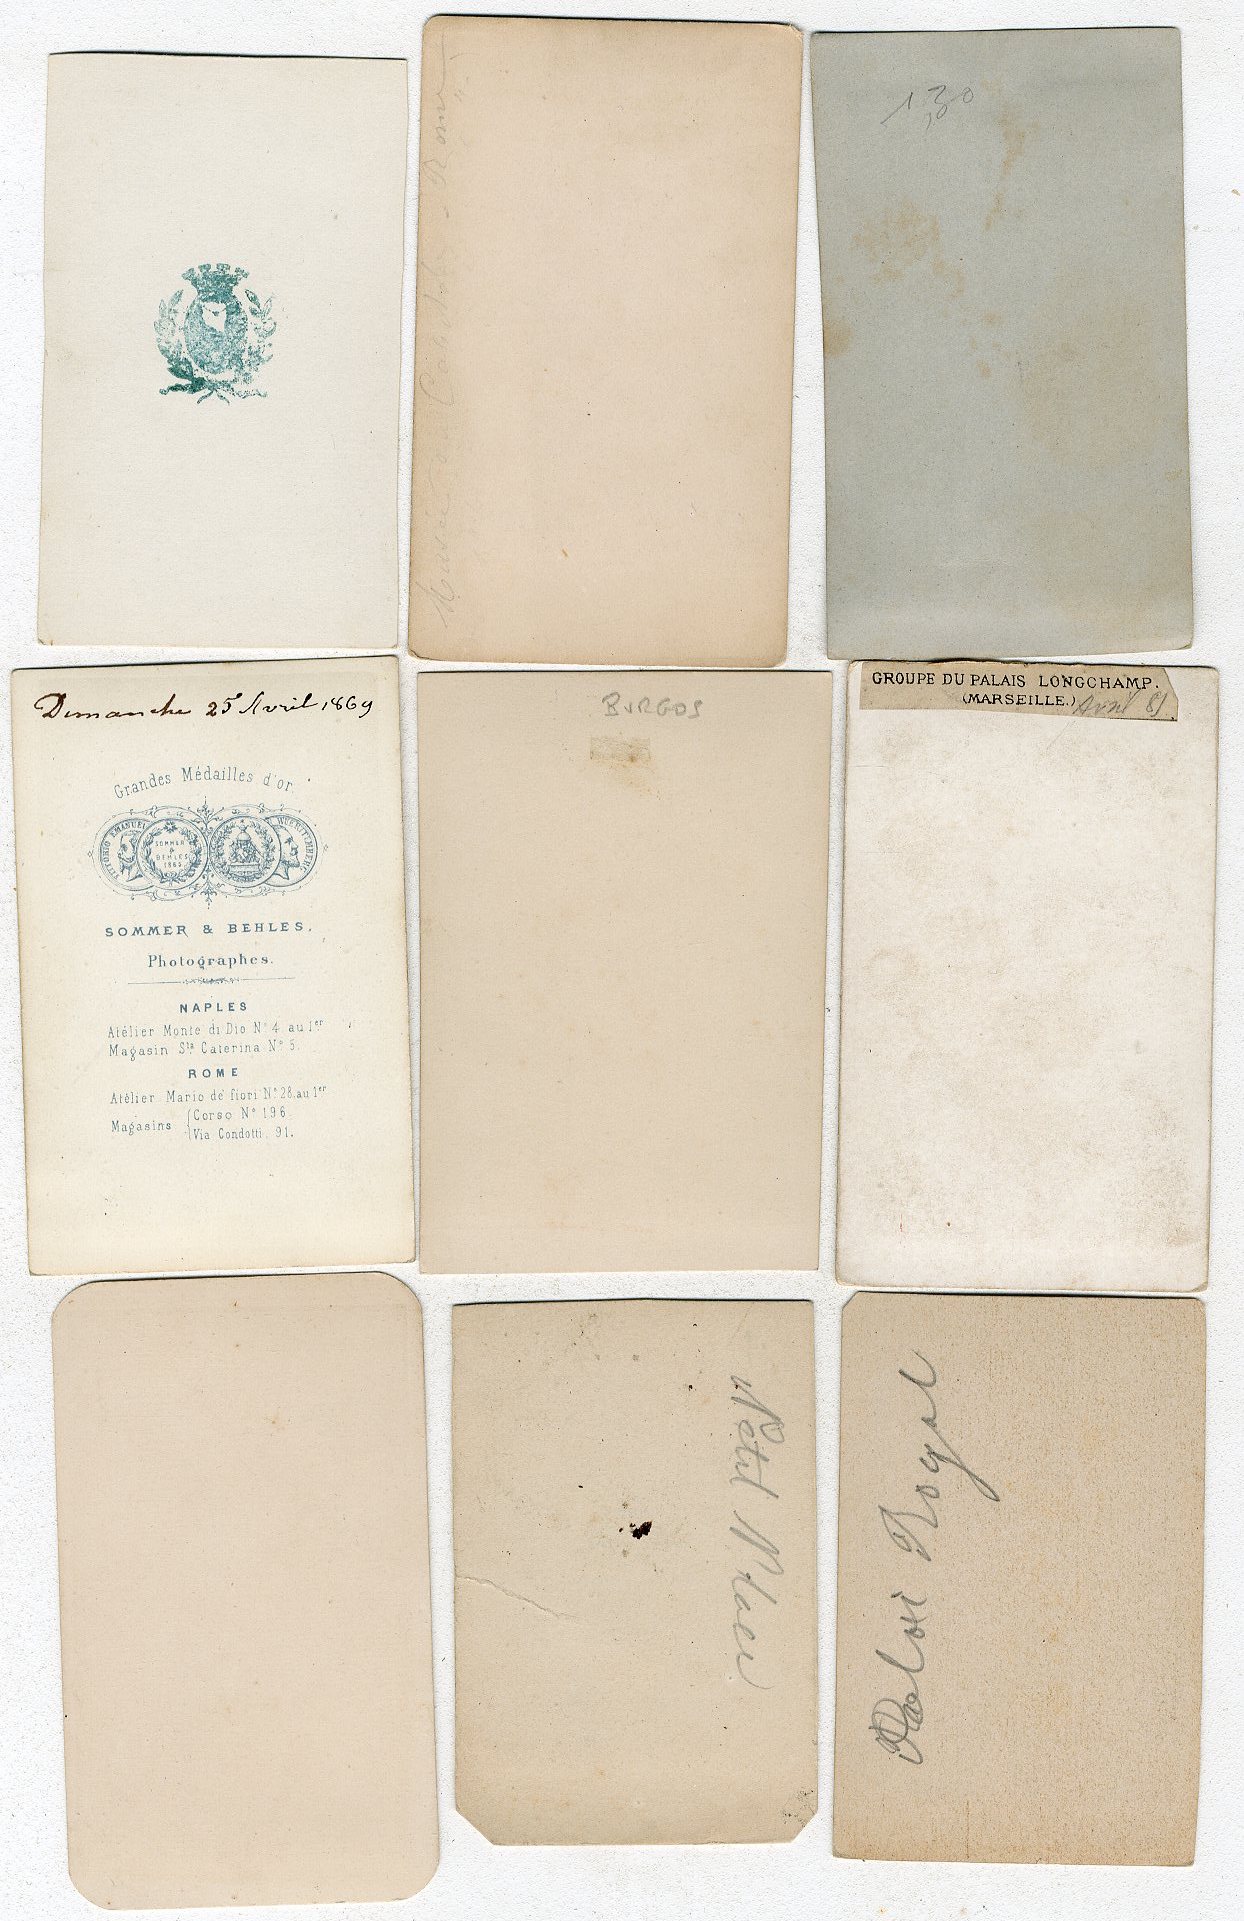 Rome
130
Dimanche 25 Avril 1869
Grandes Médailles d'or.
VITTORIO EMANUEL
SOMMER
&
BEHLES
1865
WUERTTEMBERG
SOMMER & BEHLES.
Photographes.
NAPLES
Atélier Monte di Dio Nº 4 au 1er
Magasin Sta Caterina Nº 5.
ROME
Atélier Mario de' fiori Nº 28. au 1er
Magasins
Corso Nº 196
Via Condotti, 91.
BURGOS
GROUPE DU PALAIS LONGCHAMP.
(MARSEILLE.) Avril 81
Palais Royal